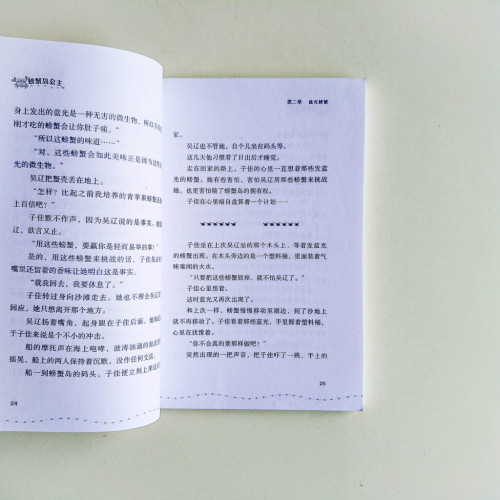 螃蟹与公主
身上发出的蓝光是一种无害的微生物，所以
刚才吃的螃蟹会让你肚子痛。”
“所以这螃蟹的味道……”
“对，这些螃蟹会如此美味正是因为这
光的微生物。”
吴辽把蟹壳丢在地上。
“怎样？比起之前我培养的青苹果螃蟹
上百倍吧？”
子佳默不作声，因为吴辽说的是事实，
辽，欲言又止。
“用这些螃蟹，要赢你是轻而易举的事！”
是的，用这些螃蟹来挑战的话，子佳是
嘴里还留着的香味让她明白这是事实。
“载我回去，我要休息了。”
子佳转过身向沙滩走去，她也不理会吴辽
回应，她只想离开那个地方。
吴辽扬着嘴角，起身跟在子佳后面，
于子佳来说是个不小的冲击。
船的摩托声在海上咆哮，波涛汹涌的海面
摇晃，船上的两人保持着沉默，没作任何交流。
船一到螃蟹岛的码头，子佳便立到上岸
24
第二章 蓝光螃蟹
家。
吴辽也不管她，自个儿坐在码头等。
这几天他习惯看了日出后才睡觉。
走在回家的路上，子佳的心里一直想着那些发蓝
光的螃蟹。她有些害怕，害怕吴辽用那些螃蟹来挑战
她，也更害怕输了螃蟹岛的拥有权。
子佳在心里暗自盘算着一个计划……
子佳坐在上次吴辽坐的那个木头上，等着发蓝光
的螃蟹出现。在木头旁边的是一个塑料桶，里面装着气
味难闻的火水。
“只要把这些螃蟹毁掉，就不怕吴辽了。”
子佳心里想着。
这时蓝光又再次出现了。
和上次一样，螃蟹慢慢移动至陆边，到了沙地上
就不再移动了。子佳看着那些蓝光，手里握着塑料桶，
心里在犹豫着。
“你不会真的要那样做吧？”
突然出现的一把声音，把子佳吓了一跳，手上的
25